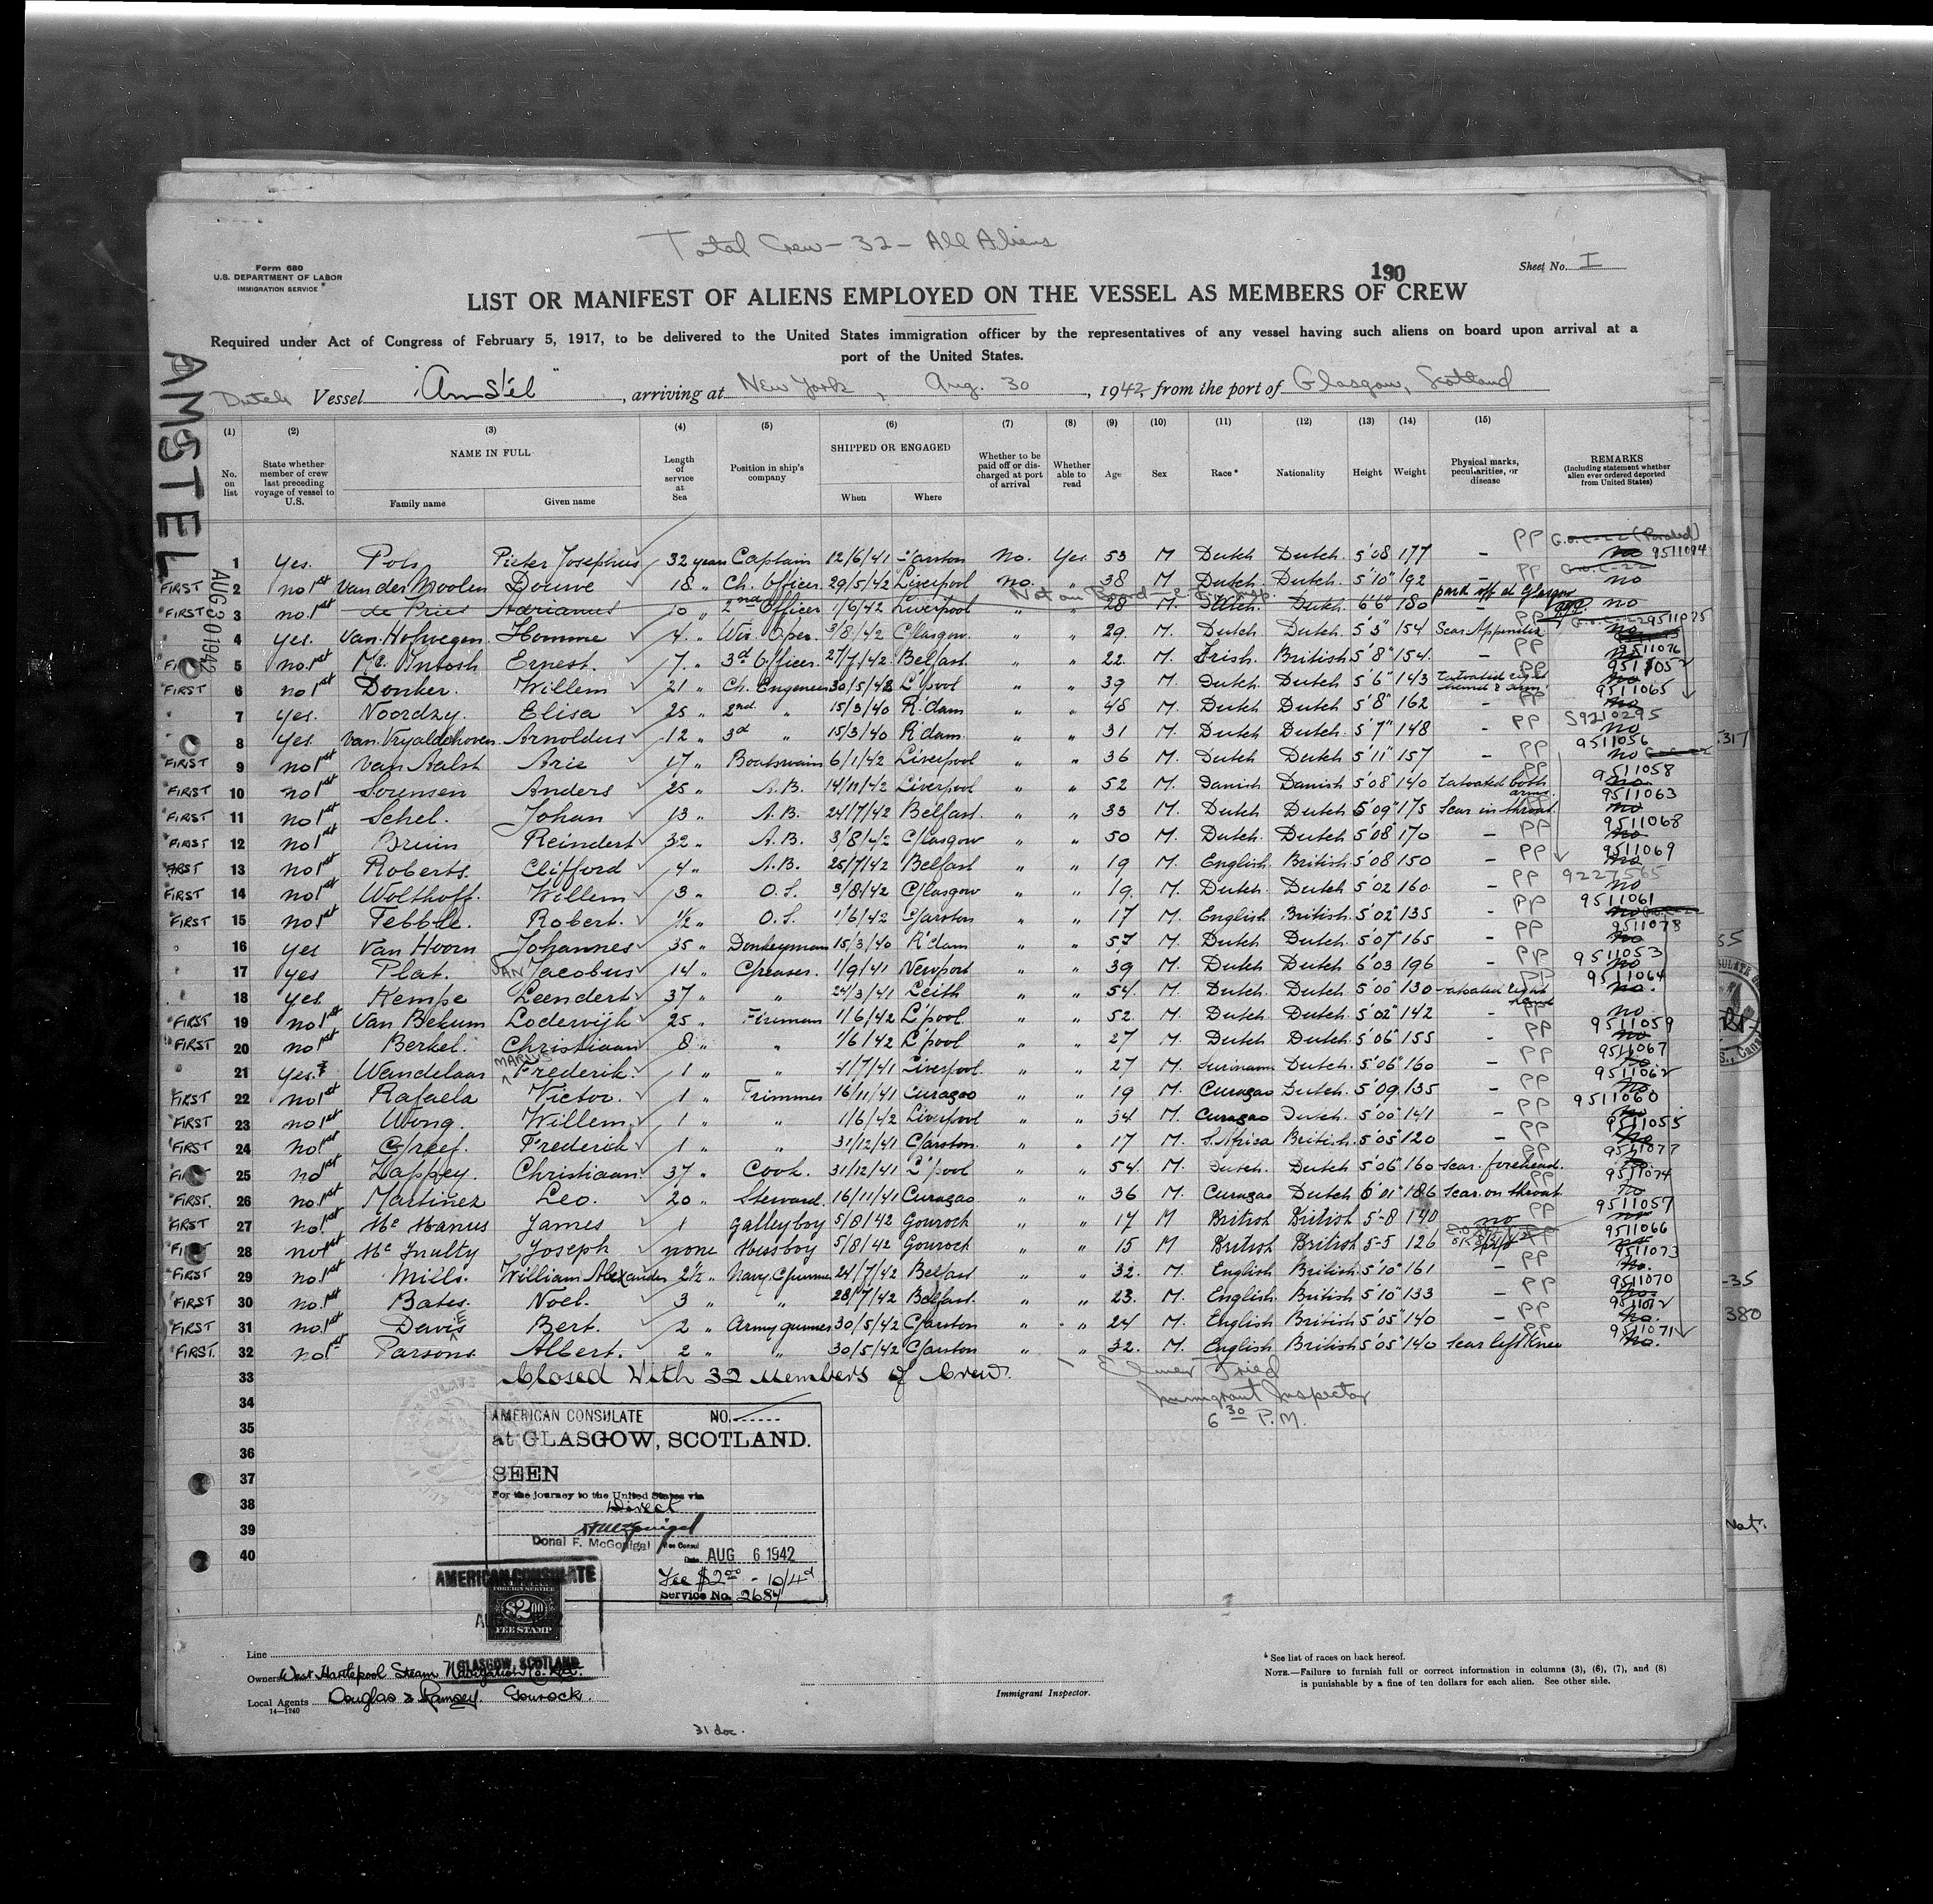 Total Crew - 32 - All Aliens
Form 680
U.S. DEPARTMENT OF LABOR
IMMIGRATION SERVICE
190
Sheet No. I
LIST OR MANIFEST OF ALIENS EMPLOYED ON THE VESSEL AS MEMBERS OF CREW
Required under Act of Congress of February 5, 1917, to be delivered to the United States immigration officer by the representatives of any vessel having such aliens on board upon arrival at a
port of the United States.
Dutch Vessel "Amstel", arriving at New York, Aug. 30, 1942, from the port of Glasgow, Scotland
AMSTEL
AUG 30 1942
(1) (2) (3) (4) (5) (6) (7) (8) (9) (10) (11) (12) (13) (14) (15)
No. on list
State whether member of crew last preceding voyage of vessel to U.S.
NAME IN FULL
Family name
Given name
Length of service at Sea
Position in ship's company
SHIPPED OR ENGAGED
When
Where
Whether to be paid off or discharged at port of arrival
Whether able to read
Age
Sex
Race*
Nationality
Height
Weight
Physical marks, peculiarities, or disease
REMARKS
(Including statement whether alien ever ordered deported from United States)
1 yes. Pols Pieter Josephus 32 years Captain 12/6/41 Garston No. Yes 53 M Dutch Dutch. 5'08 177 - PP no 9511094
FIRST 2 no 1st van der Moolen Douwe 18 " Ch. Officer. 29/5/42 Liverpool no. " 38 M Dutch. Dutch. 5'10" 192 - PP no
FIRST 3 no. 1st de Vries Adrianus 10 " 2nd Officer 1/6/42 Liverpool " " 28 M. Dutch. Dutch 6'6" 180 paid off at Glasgow no
4 yes. van Hofwegen. Homme 4. " Wir. Oper. 3/8/42 Glasgow. " " 29. M. Dutch. Dutch. 5'5" 154 Scar Appendix PP no 9511075
5 no. 1st Mc. Intosh Ernest. 7. " 3d Officer 27/7/42 Belfast. " " 22. M. Irish. British 5'8" 154. - PP 9511076
FIRST 6 no 1st Donker. Willem 21 " Ch. Engeneer 30/5/42 L'pool " " 39 M. Dutch. Dutch 5'6" 143 Tatoated right hand & arm PP
7 yes. Noordzy. Elisa 25 " 2nd " 15/3/40 R.dam " " 48 M. Dutch Dutch 5'8" 162 - PP 9511065 no
8 yes van Vryaldehoven Arnoldus 12 " 3d " 15/3/40 R'dam. " " 31 M. Dutch Dutch 5'7" 148 - PP S9210295 no
FIRST 9 no 1st van Aalst Arie 17 " Boatswain 6/1/42 Liverpool " " 36 M. Dutch Dutch 5'11" 157 - PP 9511056 no
FIRST 10 no 1st Sorensen Anders 25 " A.B. 14/11/42 Liverpool " " 52 M. Danish Danish 5'08" 140 Tatoated both arms. 9511058 no
FIRST 11 no 1st Schel. Johan 13 " A.B. 24/7/42 Belfast. " " 33 M. Dutch Dutch 5'09" 175 Scar in throat. 9511063 no
FIRST 12 no 1st Bruin Reindert 32 " A.B. 3/8/42 Glasgow " " 50 M. Dutch. Dutch 5'08" 170 - PP 9511068 no
FIRST 13 no 1st Roberts. Clifford 4 " A.B. 25/7/42 Belfast " " 19 M. English. British. 5'08 150 - PP 9511069 no
FIRST 14 no 1st Wolthoff. Willem 3 " O.S. 3/8/42 Glasgow " " 19. M. Dutch. Dutch. 5'02 160. - PP 9227565 no
FIRST 15 no 1st Tebble. Robert. 1/2 " O.S. 1/6/42 Garston " " 17 M. English British. 5'02" 135 - PP 9511061 no
16 yes van Hoorn Johannes 35 " Donkeyman 15/3/40 R'dam " " 57 M. Dutch Dutch. 5'07" 165 - PP 9511078 no
17 yes Plat. JAN Jacobus 14 " Greaser. 1/9/41 Newport " " 39 M. Dutch Dutch. 6'03 196 - PP 9511053 no
18 yes Kempe Leendert 37 " " 24/3/41 Leith " " 54. M. Dutch. Dutch. 5'00" 130 Tatoated right hand 9511064 no.
FIRST 19 no 1st van Bekum Lodewijk 25 " Fireman 1/6/42 L'pool. " " 52. M. Dutch. Dutch. 5'02" 142 - PP no
FIRST 20 no 1st Berkel. Christiaan 8 " " 1/6/42 L'pool " " 27 M. Dutch Dutch. 5'06" 155 - PP 9511059 no
21 yes. Wendelaar MARIUS Frederik. 1 " " 1/7/41 Liverpool. " " 27 M. Surinam Dutch. 5'06" 160 - PP 9511067 no
FIRST 22 no 1st Rafaela Victor. 1 " Trimmer 16/11/41 Curaçao " " 19 M. Curaçao Dutch. 5'09. 135 - PP 9511062 no
FIRST 23 no 1st Wong. Willem 1 " " 1/6/42 Liverpool " " 34 M. Curaçao Dutch. 5'00" 141 - PP 9511060 no
FIRST 24 no. 1st Greef. Frederik 1 " " 31/12/41 Garston. " " 17 M. S. Africa British. 5'05" 120 - PP 9511055 no
25 no 1st Lappey. Christiaan 37 " Cook. 31/12/41 L'pool " " 54. M. Dutch. Dutch 5'06" 160 Scar. forehead. 9511077 no
FIRST. 26 no. 1st Martinez Leo. 20 " Steward. 16/11/41 Curaçao " " 36 M. Curaçao Dutch 6'01" 186 Scar. on throat. PP 9511074 no
FIRST 27 no. 1st Mc Manus James 1 galley boy 5/8/42 Gourock " " 17 M British British 5'-8 140 no PP 9511057 no
28 no 1st Mc Inulty Joseph none Messboy 5/8/42 Gourock " " 15 M British British 5-5 126 9511066
FIRST 29 no. 1st Mills. William Alexander 2½ " Navy. Gunner 24/7/42 Belfast " " 32. M. English British. 5'10" 161 - PP 9511073 no.
FIRST 30 no. 1st Bates. Noel. 3 " " 28/7/42 Belfast. " " 23. M. English. British. 5'10" 133 - PP 9511070 no.
FIRST 31 no. 1st Davis Bert. 2 " Army gunner 30/5/42 Garston " " 24 M. English British 5'05" 140 - PP no.
FIRST. 32 no 1st Parsons Albert. 2 " " 30/5/42 Garston " " 32. M. English British 5'05" 140 Scar left Knee PP 9511071 no.
33 Closed With 32 Members of Crew. Elmer Fried
34 Immigrant Inspector
35 6 30 P.M.
36
37
38
39
40
AMERICAN CONSULATE NO.
at GLASGOW, SCOTLAND.
SEEN
For the journey to the United States via
Direct
Donal F. McGonigal Vice Consul
Date AUG 6 1942
Fee $2.00 - 10/4d
Service No. 2684
AMERICAN CONSULATE
FOREIGN SERVICE
$2.00
FEE STAMP
GLASGOW, SCOTLAND
Line
Owners West Hartlepool Steam Navigation Co. Ltd.
Local Agents Douglas & Ramsey. Gourock.
14—1240
Immigrant Inspector.
* See list of races on back hereof.
NOTE.—Failure to furnish full or correct information in columns (3), (6), (7), and (8)
is punishable by a fine of ten dollars for each alien. See other side.
31 doc.